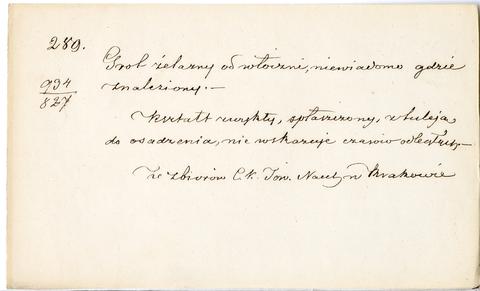 289.
934
827
Grot żelazny od włóczni, niewiadomo gdzie
znaleziony.—
Kształt zwykły, spłaszczony, z tuleją
do osadzenia, nie wskazuje czasów odległych.—
Ze zbiorów C. k. Tow. Nauk. w Krakowie